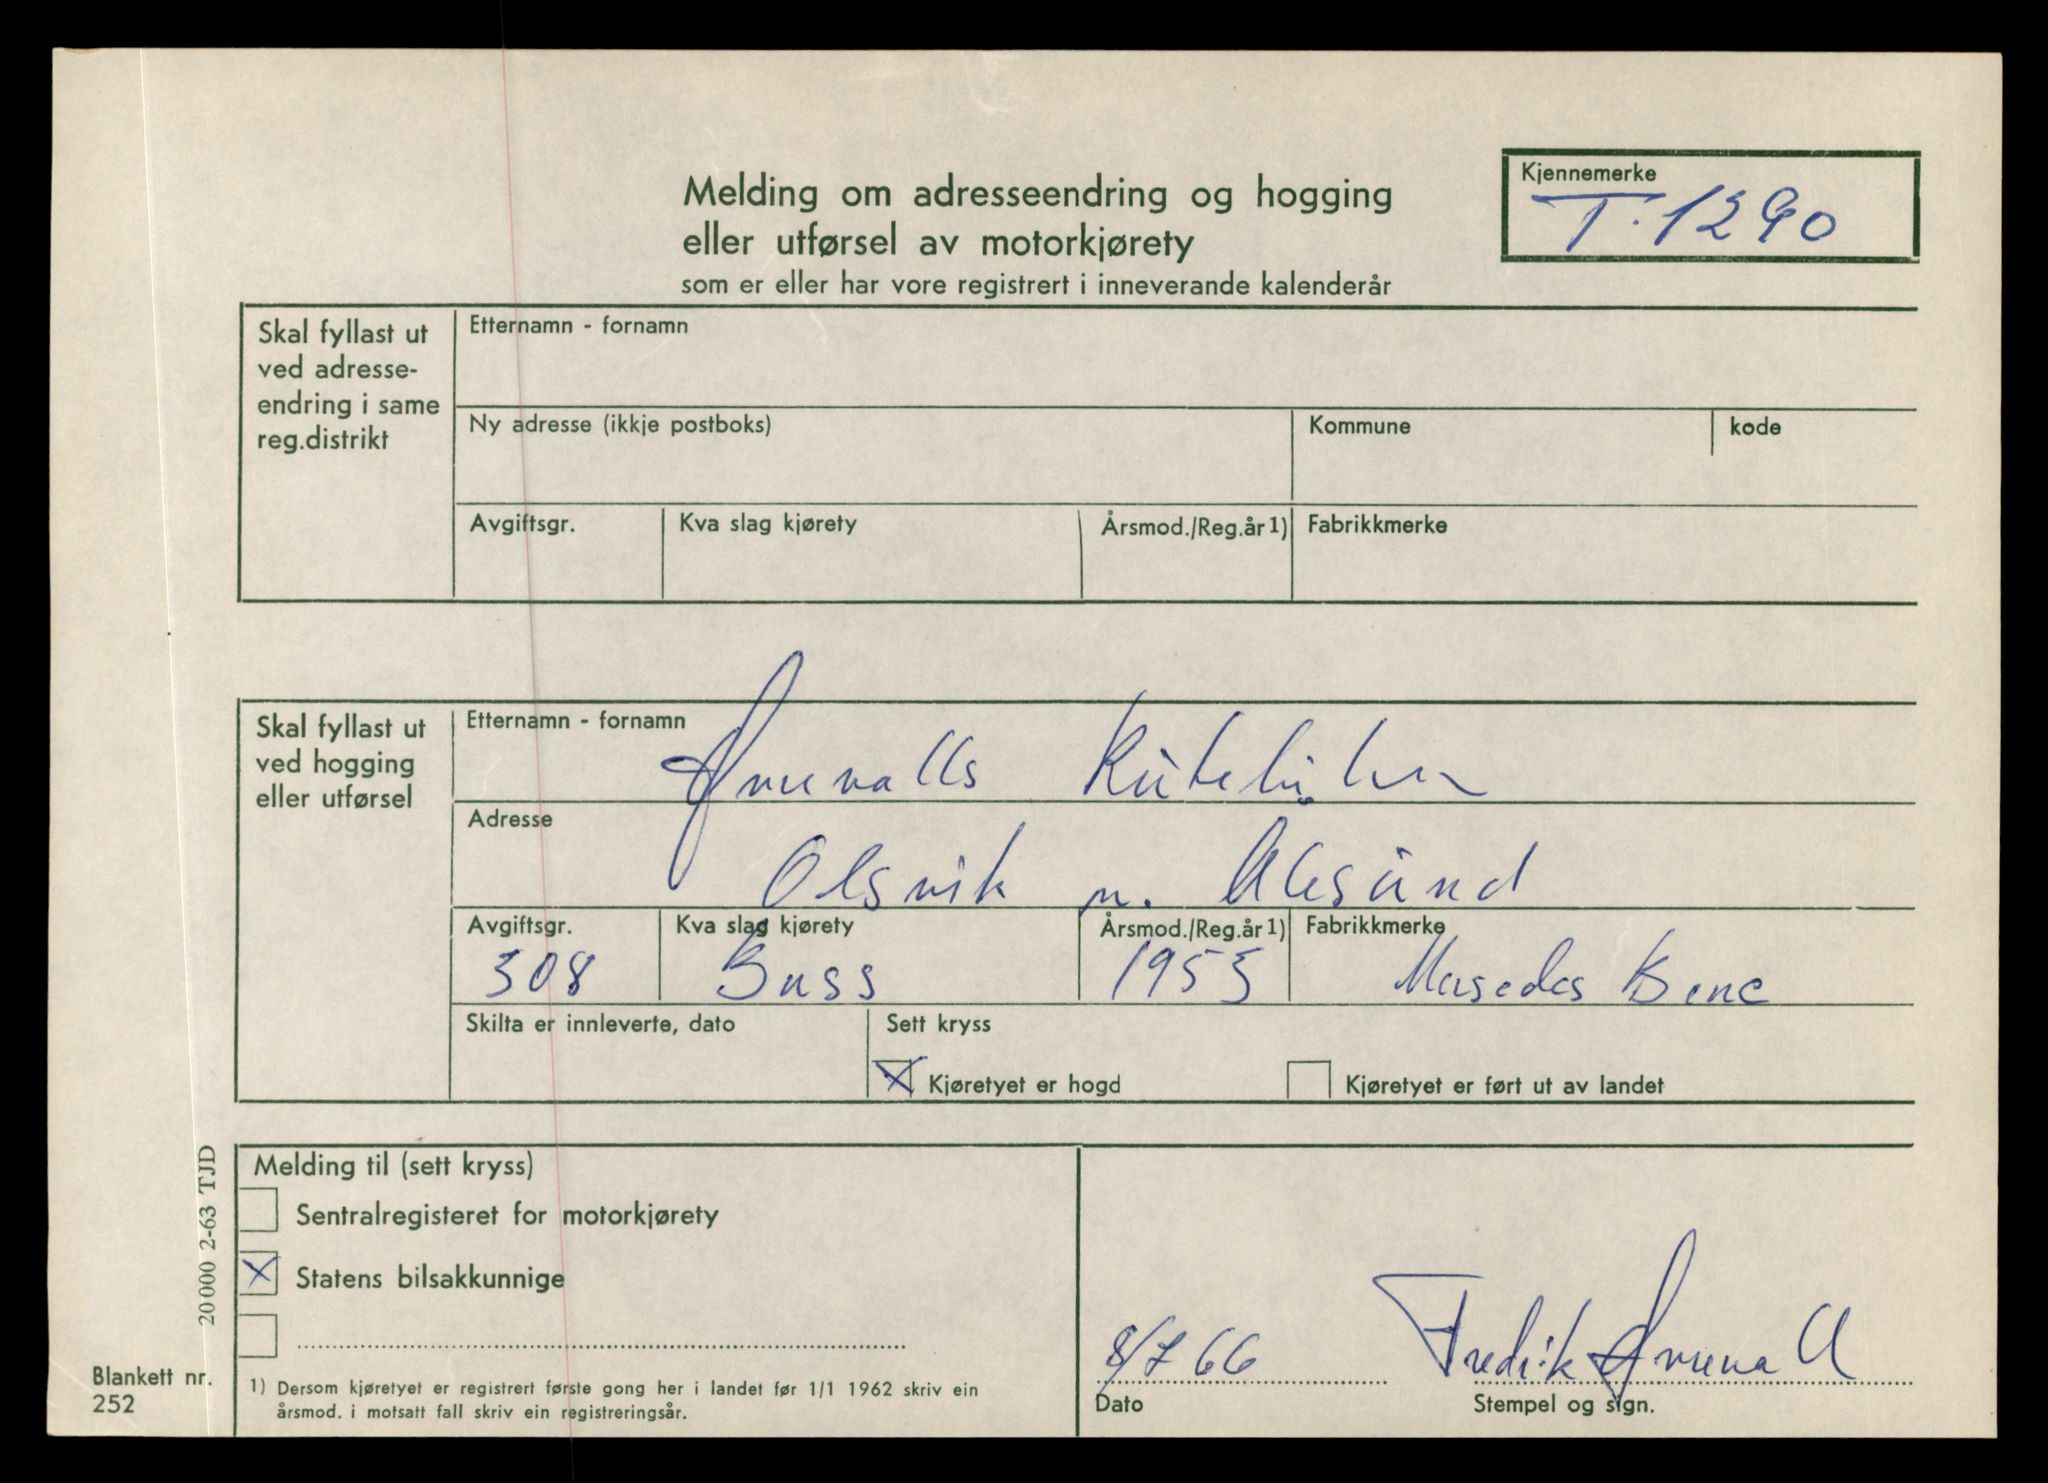 Melding om adresseendring og hogging
eller utførsel av motorkjørety
som er eller har vore registrert i inneverande kalenderår
Kjennemerke
T-1290
Skal fyllast ut
ved adresse-
endring i same
reg.distrikt
Etternamn - fornamn
Ny adresse (ikkje postboks)
Kommune
kode
Avgiftsgr.
Kva slag kjørety
Årsmod./Reg.år 1)
Fabrikkmerke
Skal fyllast ut
ved hogging
eller utførsel
Etternamn - fornamn
Adresse
Olsvik n. Ålesund
Avgiftsgr.
308
Kva slag kjørety
Buss
Årsmod./Reg.år 1)
1953
Fabrikkmerke
Mersedes Benc
Skilta er innleverte, dato
Sett kryss
Kjøretyet er hogd
Kjøretyet er ført ut av landet
Melding til (sett kryss)
Sentralregisteret for motorkjørety
Statens bilsakkunnige
1) Dersom kjøretyet er registrert første gong her i landet før 1/1 1962 skriv ein
årsmod. i motsatt fall skriv ein registreringsår.
8/7 66
Dato
Fredrik
Stempel og sign.
20 000 2-63 TJD
Blankett nr.
252